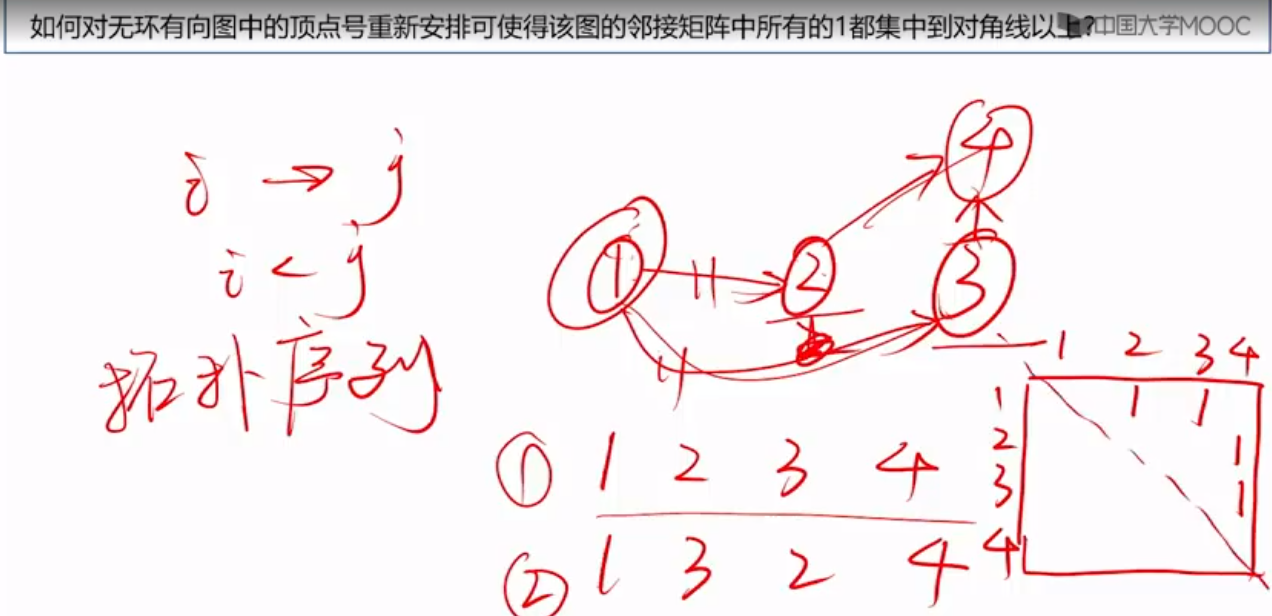 如何对无环有向图中的顶点号重新安排可使得该图的邻接矩阵中所有的1都集中到对角线以上?
中国大学MOOC
i → j
i < j
拓扑序列
4
1
2
3
1 2 3 4
1 1 1
2 1
3 1
4
① 1 2 3 4
② 1 3 2 4